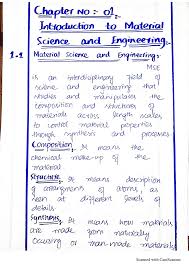 Chapter No : 01.
Introduction to Material
Science and Engineering.
1-1 Material Science and Engineering:
MSE
is an interdiciplinary field of
science and engineering that
studies and manipulates the
composition and structures of
materials across length scales
to control material properties
through synthesis and processes
Composition, It means the
chemical make-up of the
material
Structure, It means description
of arrangement of atoms, as
seen at different levels of
details
Synthesis, It means how materials
are made from naturally
Occuring or man-made materials
Scanned with CamScanner